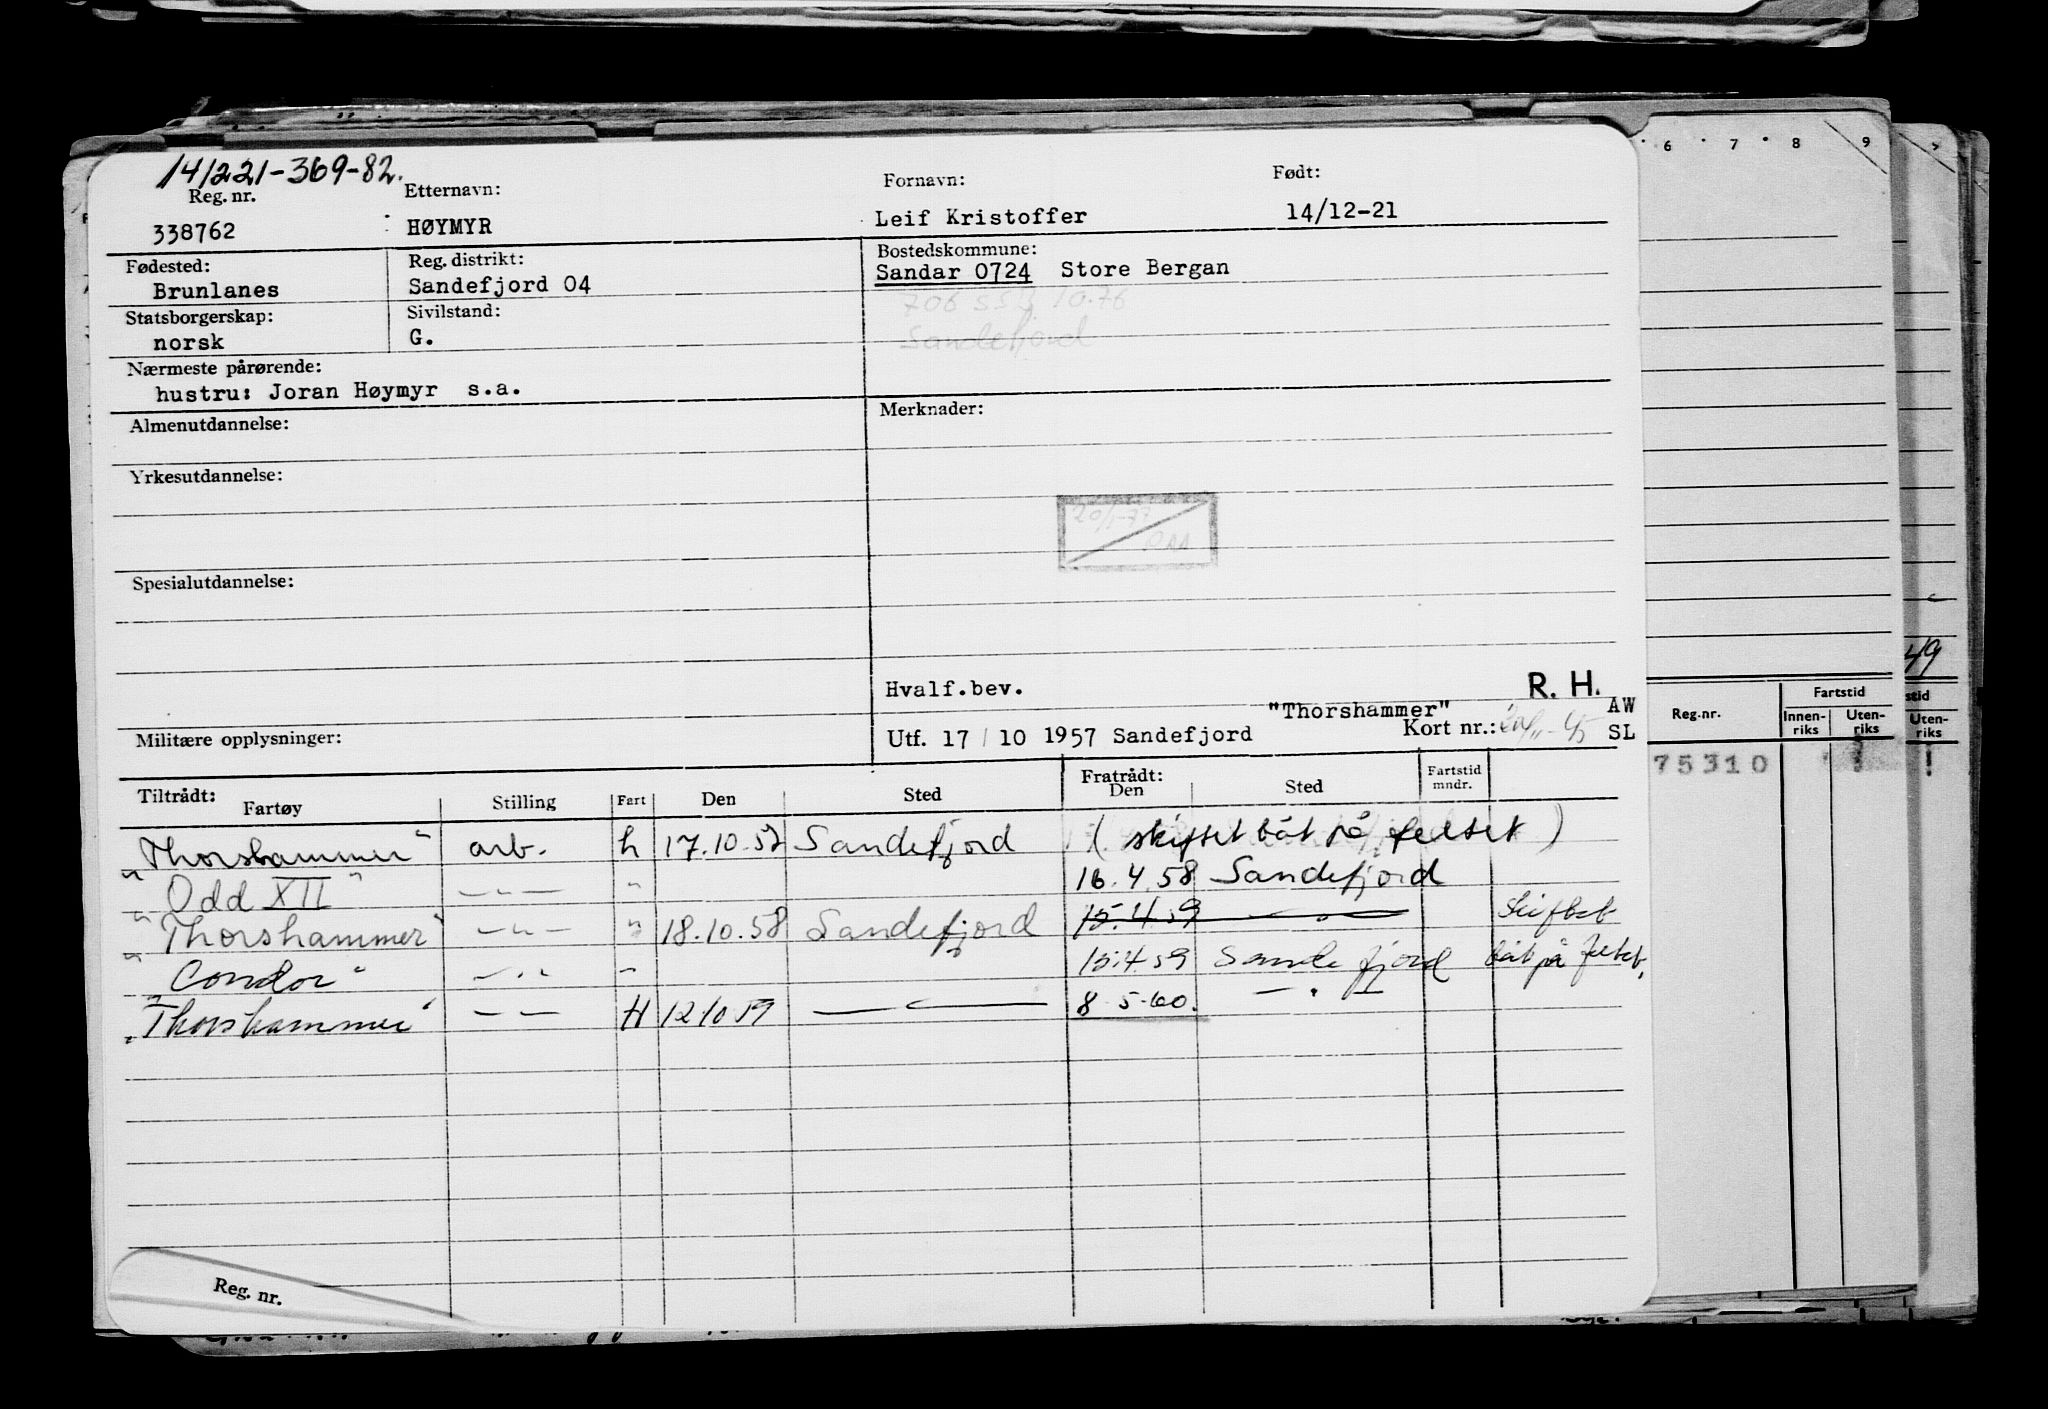 14/221-369-82.
Reg. nr. Etternavn: Fornavn: Født:
338762 HØYMYR Leif Kristoffer 14/12-21
Fødested: Reg. distrikt: Bostedskommune:
Brunlanes Sandefjord 04 Sandar 0724 Store Bergan
Statsborgerskap: Sivilstand: 706 10.76
norsk G. Sandefjord
Nærmeste pårørende:
hustru: Joran Høymyr s.a.
Almenutdannelse: Merknader:
Yrkesutdannelse:
20/1-77
Spesialutdannelse:
Hvalf.bev. R. H.
"Thorshammer" AW
Militære opplysninger: Utf. 17/10 1957 Sandefjord Kort nr.: SL
Tiltrådt: Fratrådt:
Fartøy Stilling Fart Den Sted Den Sted Fartstid mndr.
"Thorshammer" arb. h 17.10.57 Sandefjord (skiftet båt på feltet)
"Odd XII" —"— " 16.4.58 Sandefjord
"Thorshammer" —"— " 18.10.58 Sandefjord 15.4.59 —"— Skiftet
"Condor" —"— " 15.4.59 Sandefjord båt på feltet,
"Thorshammer" —"— H 12.10.59 —"— 8.5.60. —"—
Reg. nr.
6 7 8 9
49
Reg.nr. Fartstid
Innenriks Utenriks
Utenriks
75310